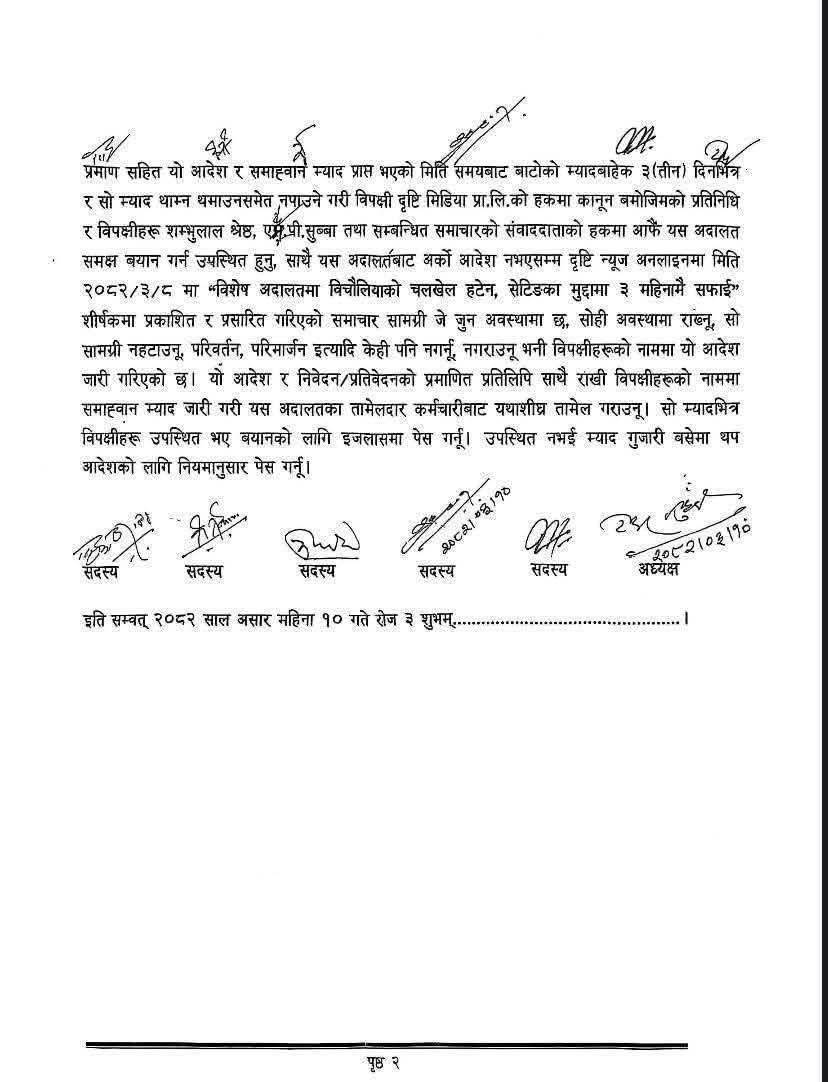 प्रमाण सहित यो आदेश र समाह्वान म्याद प्राप्त भएको मिति समयबाट बाटोको म्यादबाहेक ३(तीन) दिनभित्र
र सो म्याद थाम्न थमाउनसमेत नपाउने गरी विपक्षी दृष्टि मिडिया प्रा.लि.को हकमा कानून बमोजिमको प्रतिनिधि
र विपक्षीहरू शम्भुलाल श्रेष्ठ, एम.पी.सुब्बा तथा सम्बन्धित समाचारको संवाददाताको हकमा आफैं यस अदालत
समक्ष बयान गर्न उपस्थित हुनु, साथै यस अदालतबाट अर्को आदेश नभएसम्म दृष्टि न्यूज अनलाइनमा मिति
२०८२/३/८ मा “विशेष अदालतमा विचौलियाको चलखेल हटेन, सेटिङका मुद्दामा ३ महिनामै सफाई”
शीर्षकमा प्रकाशित र प्रसारित गरिएको समाचार सामग्री जे जुन अवस्थामा छ, सोही अवस्थामा राख्नू, सो
सामग्री नहटाउनू, परिवर्तन, परिमार्जन इत्यादि केही पनि नगर्नू, नगराउनू भनी विपक्षीहरूको नाममा यो आदेश
जारी गरिएको छ। यो आदेश र निवेदन/प्रतिवेदनको प्रमाणित प्रतिलिपि साथै राखी विपक्षीहरूको नाममा
समाह्वान म्याद जारी गरी यस अदालतका तामेलदार कर्मचारीबाट यथाशीघ्र तामेल गराउनू। सो म्यादभित्र
विपक्षीहरू उपस्थित भए बयानको लागि इजलासमा पेस गर्नू। उपस्थित नभई म्याद गुजारी बसेमा थप
आदेशको लागि नियमानुसार पेस गर्नू।
२०८२।०३।१० २०८२।०३।१०
सदस्य सदस्य सदस्य सदस्य सदस्य अध्यक्ष
इति सम्वत् २०८२ साल असार महिना १० गते रोज ३ शुभम्..............................................।
पृष्ठ २